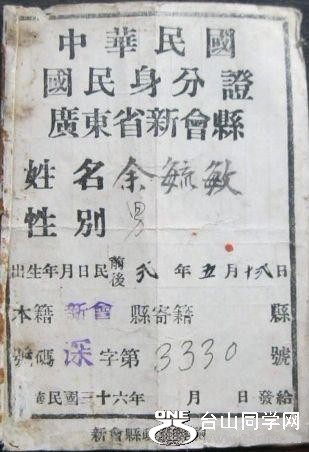 中華民國
國民身分證
廣東省新會縣
姓名余毓敏
性別 男
出生年月日民前後 年五月十八日
本籍新會縣寄籍 縣
號碼深字第3330號
民國三十六年 月 日發給
ONE
台山同学网
新會縣